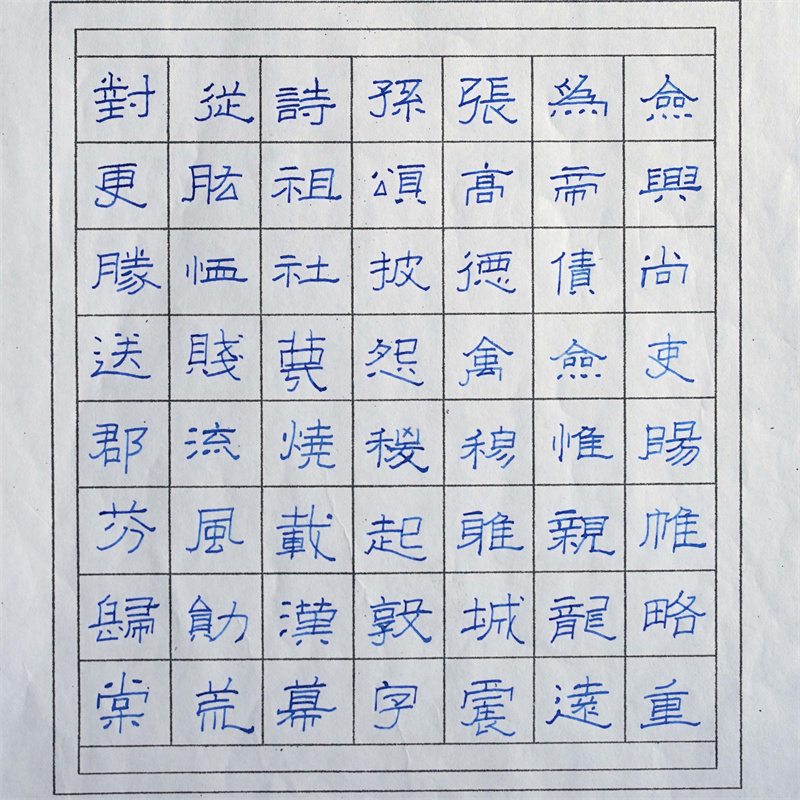 僉興尚吏帷略重
為帝債僉惟親龍遠
張高德禽穆城震
孫頌披怨稷起敦字
詩祖社燒載漢幕
從肱恤賤流風荒
對更送郡芬歸棠